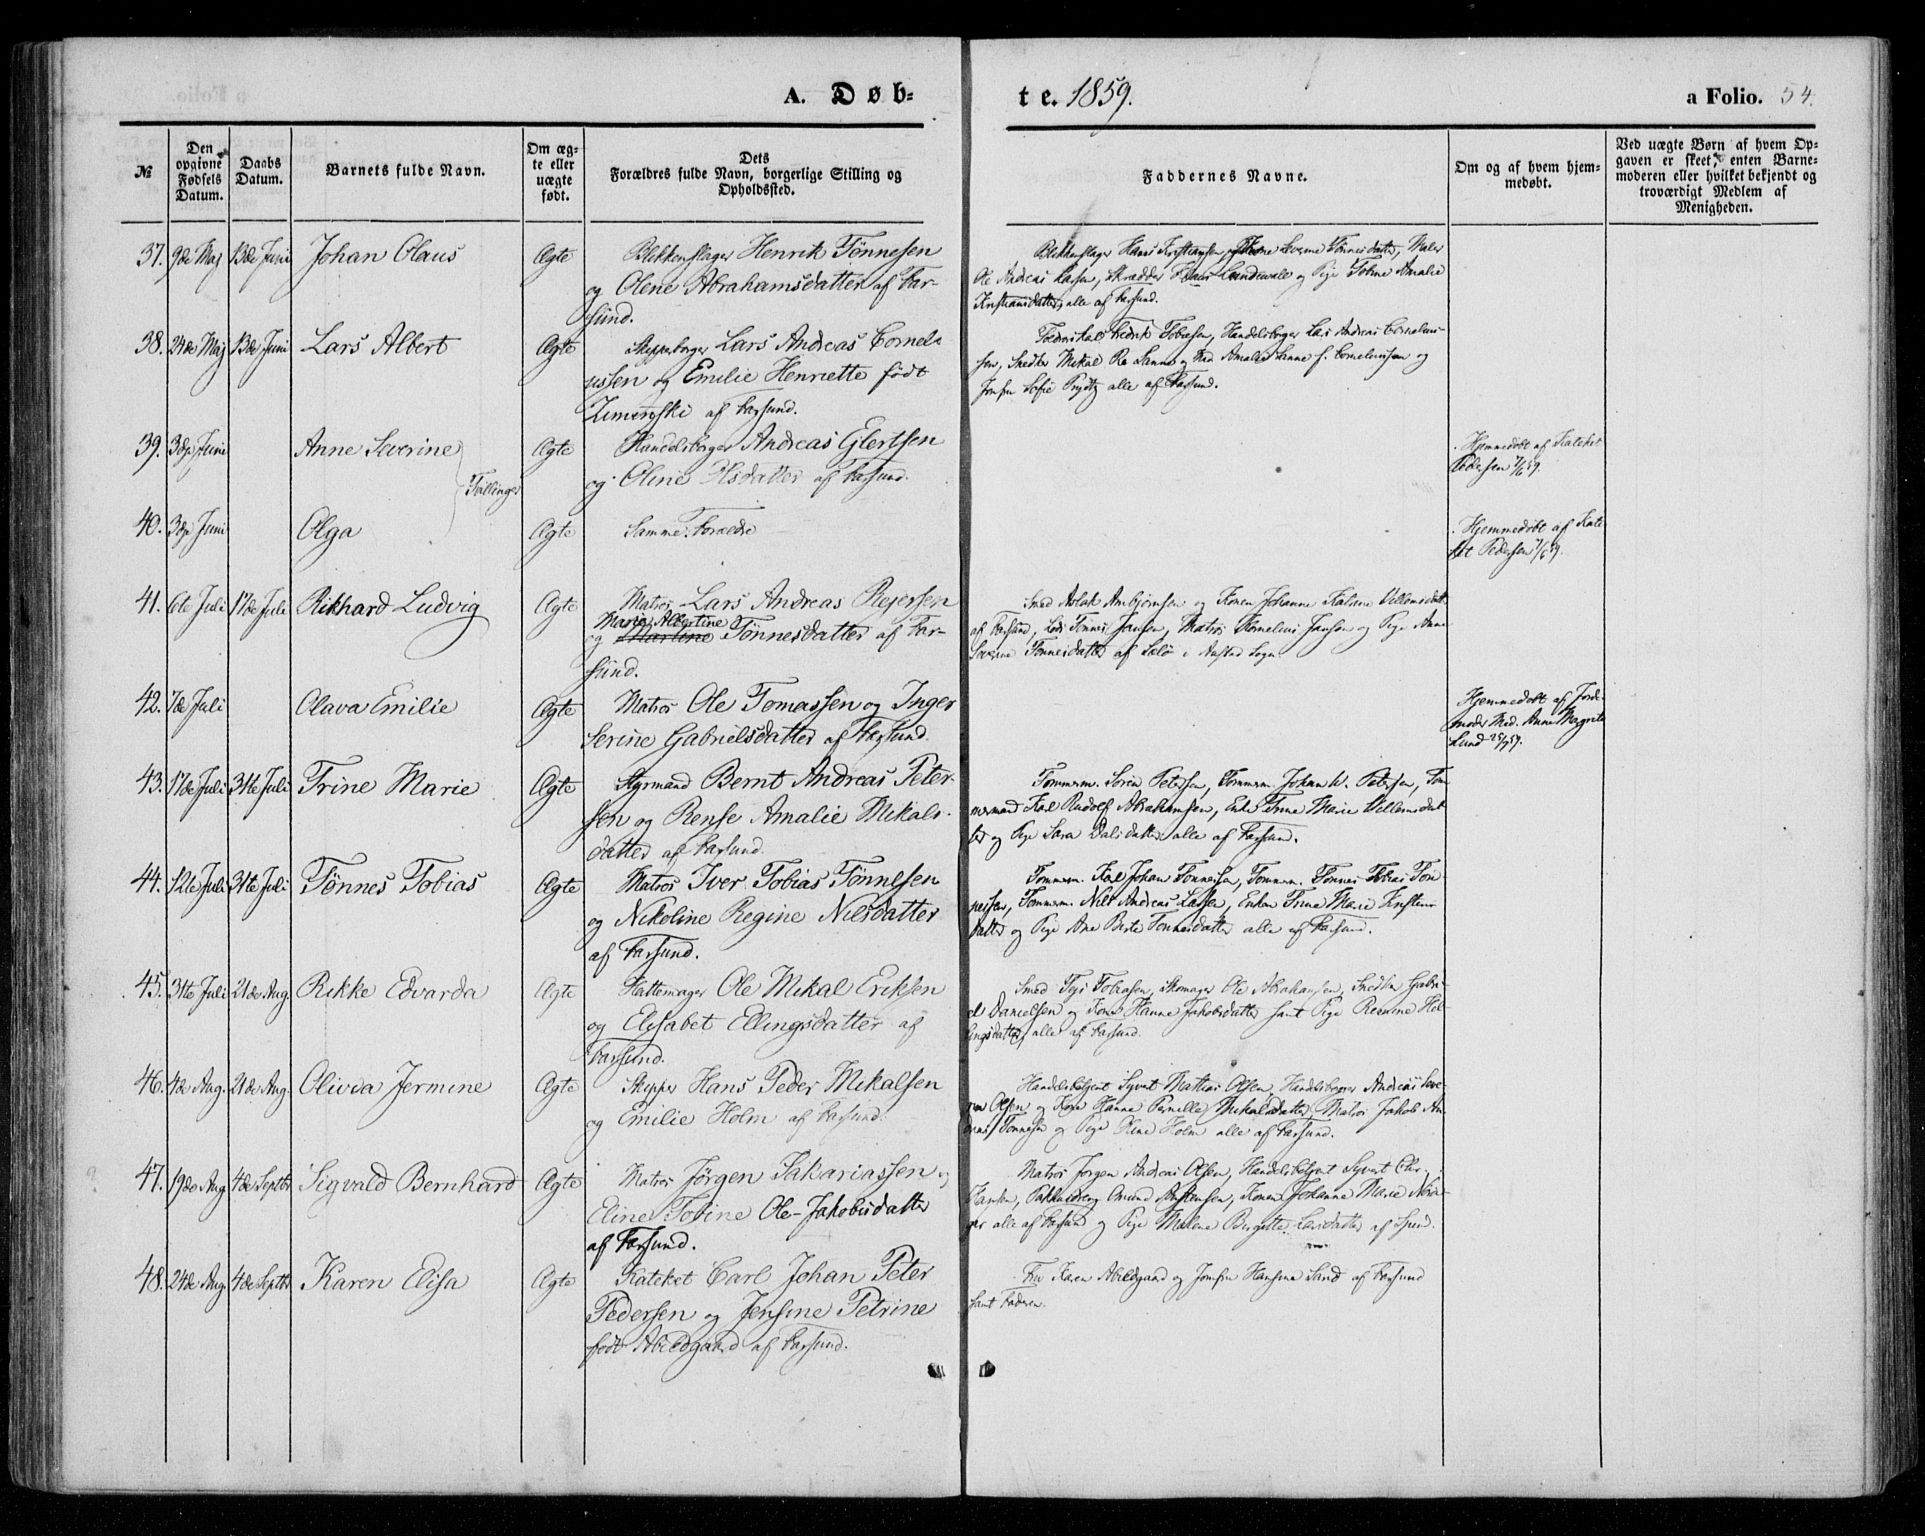 A. Døb=
te. 1859.
a Folio. 54.
№
Den opgivne Fødsels Datum.
Daabs Datum.
Barnets fulde Navn.
Om ægte eller uægte født.
Dets Forældres fulde Navn, borgerlige Stilling og Opholdssted.
Faddernes Navne.
Om og af hvem hjemmedøbt.
Ved uægte Børn af hvem Opgaven er skeet, enten Barnemoderen eller hvilket bekjendt og troværdigt Medlem af Menigheden.
37. 9de Maj 13de Juni Johan Olaus Ægte Blikkenslager Henrik Tønnesen
og Olene Abrahamsdatter af Far-
sund.
Blikkenslager Hans Kristiansen, Severine Tønnesdatter, Maler
Ole Andreas Larsen, Skrædder Lundevold og Pige Tobine Amalie
Kristiansdatter, alle af Farsund.
38. 24de Maj 13de Juni Lars Albert Ægte Skipperborger Lars Andreas Corneli-
ussen og Emilie Henriette født
af Farsund.
Fredrik Tobiasen, Handelsborger Lars Andreas Cornelius-
sen, Snedker Mikal Sanne og Mad. Amalie Sanne f. Corneliussen og
Jomfru Sofie alle af Farsund.
39. 3die Juni Anne Severine Ægte Handelsborger Andreas Glertsen
og Oline Olsdatter af Farsund.
Hjemmedøbt af Kateket
Pedersen 7/6 59.
Tvillinger
40. 3die Juni Olga Ægte Samme Forældre
Hjemmedøbt af Kate-
ket Pedersen 7/6 59.
41. 6te Juli 17de Juli Rikhard Ludvig Ægte Matros Lars Andreas Rejersen
Maria Albertine
og Martine Tønnesdatter af Far-
sund.
Smed Aslak Ambjørnsen og Konen Johanne Katrine Villumsdatt.
af Farsund, Lods Tønnes Jansen, Matros Kornelius Jansen og Pige Anne
Severine Tønnesdatter af i Sogn.
42. 7de Juli Olava Emilie Ægte Matros Ole Tomassen og Inger
Serine Gabrielsdatter af Farsund.
Hjemmedøbt af Jorde-
moder Mad. Anne Magrete
Lund 25/7 59.
43. 17de Juli 31te Juli Trine Marie Ægte Styrmand Bernt Andreas Peter-
sen og Rense Amalie Mikals-
datter af Farsund.
Tømmerm. Søren Petersen, Tømmerm. Johan W. Petersen, Tøm-
mermand Karl Rudolf Abrahamsen, Enke Trine Marie Villumsdat-
ter og Pige Sara Dalsdatter alle af Farsund.
44. 12te Juli 31te Juli Tønnes Tobias Ægte Matros Iver Tobias Tønnesen
og Nikoline Regine Nilsdatter
af Farsund.
Tømmerm. Karl Johan Tønnesen, Tømmerm. Tønnes Tobias Tøn-
nessen, Tømmerm. Nils Andreas Larsen, Enken Trine Marie Kristens-
datter og Pige Ane Berte Tønnesdatter alle af Farsund.
45. 31te Juli 21de Aug. Rikke Edvarda Ægte Hattemager Ole Mikal Eriksen
og Elisabet Ellingsdatter af
Farsund.
Smed Tobiasen, Skomager Ole Abrahamsen, Snedker Gabri-
el Danielsen og Kone Hanne Jakobsdatter samt Pige
alle af Farsund.
46. 4de Aug. 21de Aug. Olivia Jermine Ægte Skipper Hans Peder Mikalsen
og Emilie Holm af Farsund.
Handelsbetjent Syvert Mathias Olsen, Handelsborger Andreas Seve-
rin Olsen og Kone Hanne Pernille Mikalsdatter, Matros Jakob An-
dreas Tønnesen og Pige Oline Holm alle af Farsund.
47. 19de Aug 4de Septbr Sigvald Bernhard Ægte Matros Jørgen Sakariassen og
Eline Tobine Ole-Jakobsdatter
af Farsund.
Matros Jørgen Andreas Olsen, Handelsbetjent Syvert Chr.
Hansen, Omund Konen Johanne Marie
alle af Farsund og Pige Malene Bergitte Larsdatter af Spind.
48. 24de Aug 4de Septbr Karen Elisa Ægte Kateket Carl Johan Peter
Pedersen og Jensine Petrine
født Abildgaard af Farsund.
Fru Karen Abildgaard og Jomfru Hansine Sand af Farsund
samt Faderen.